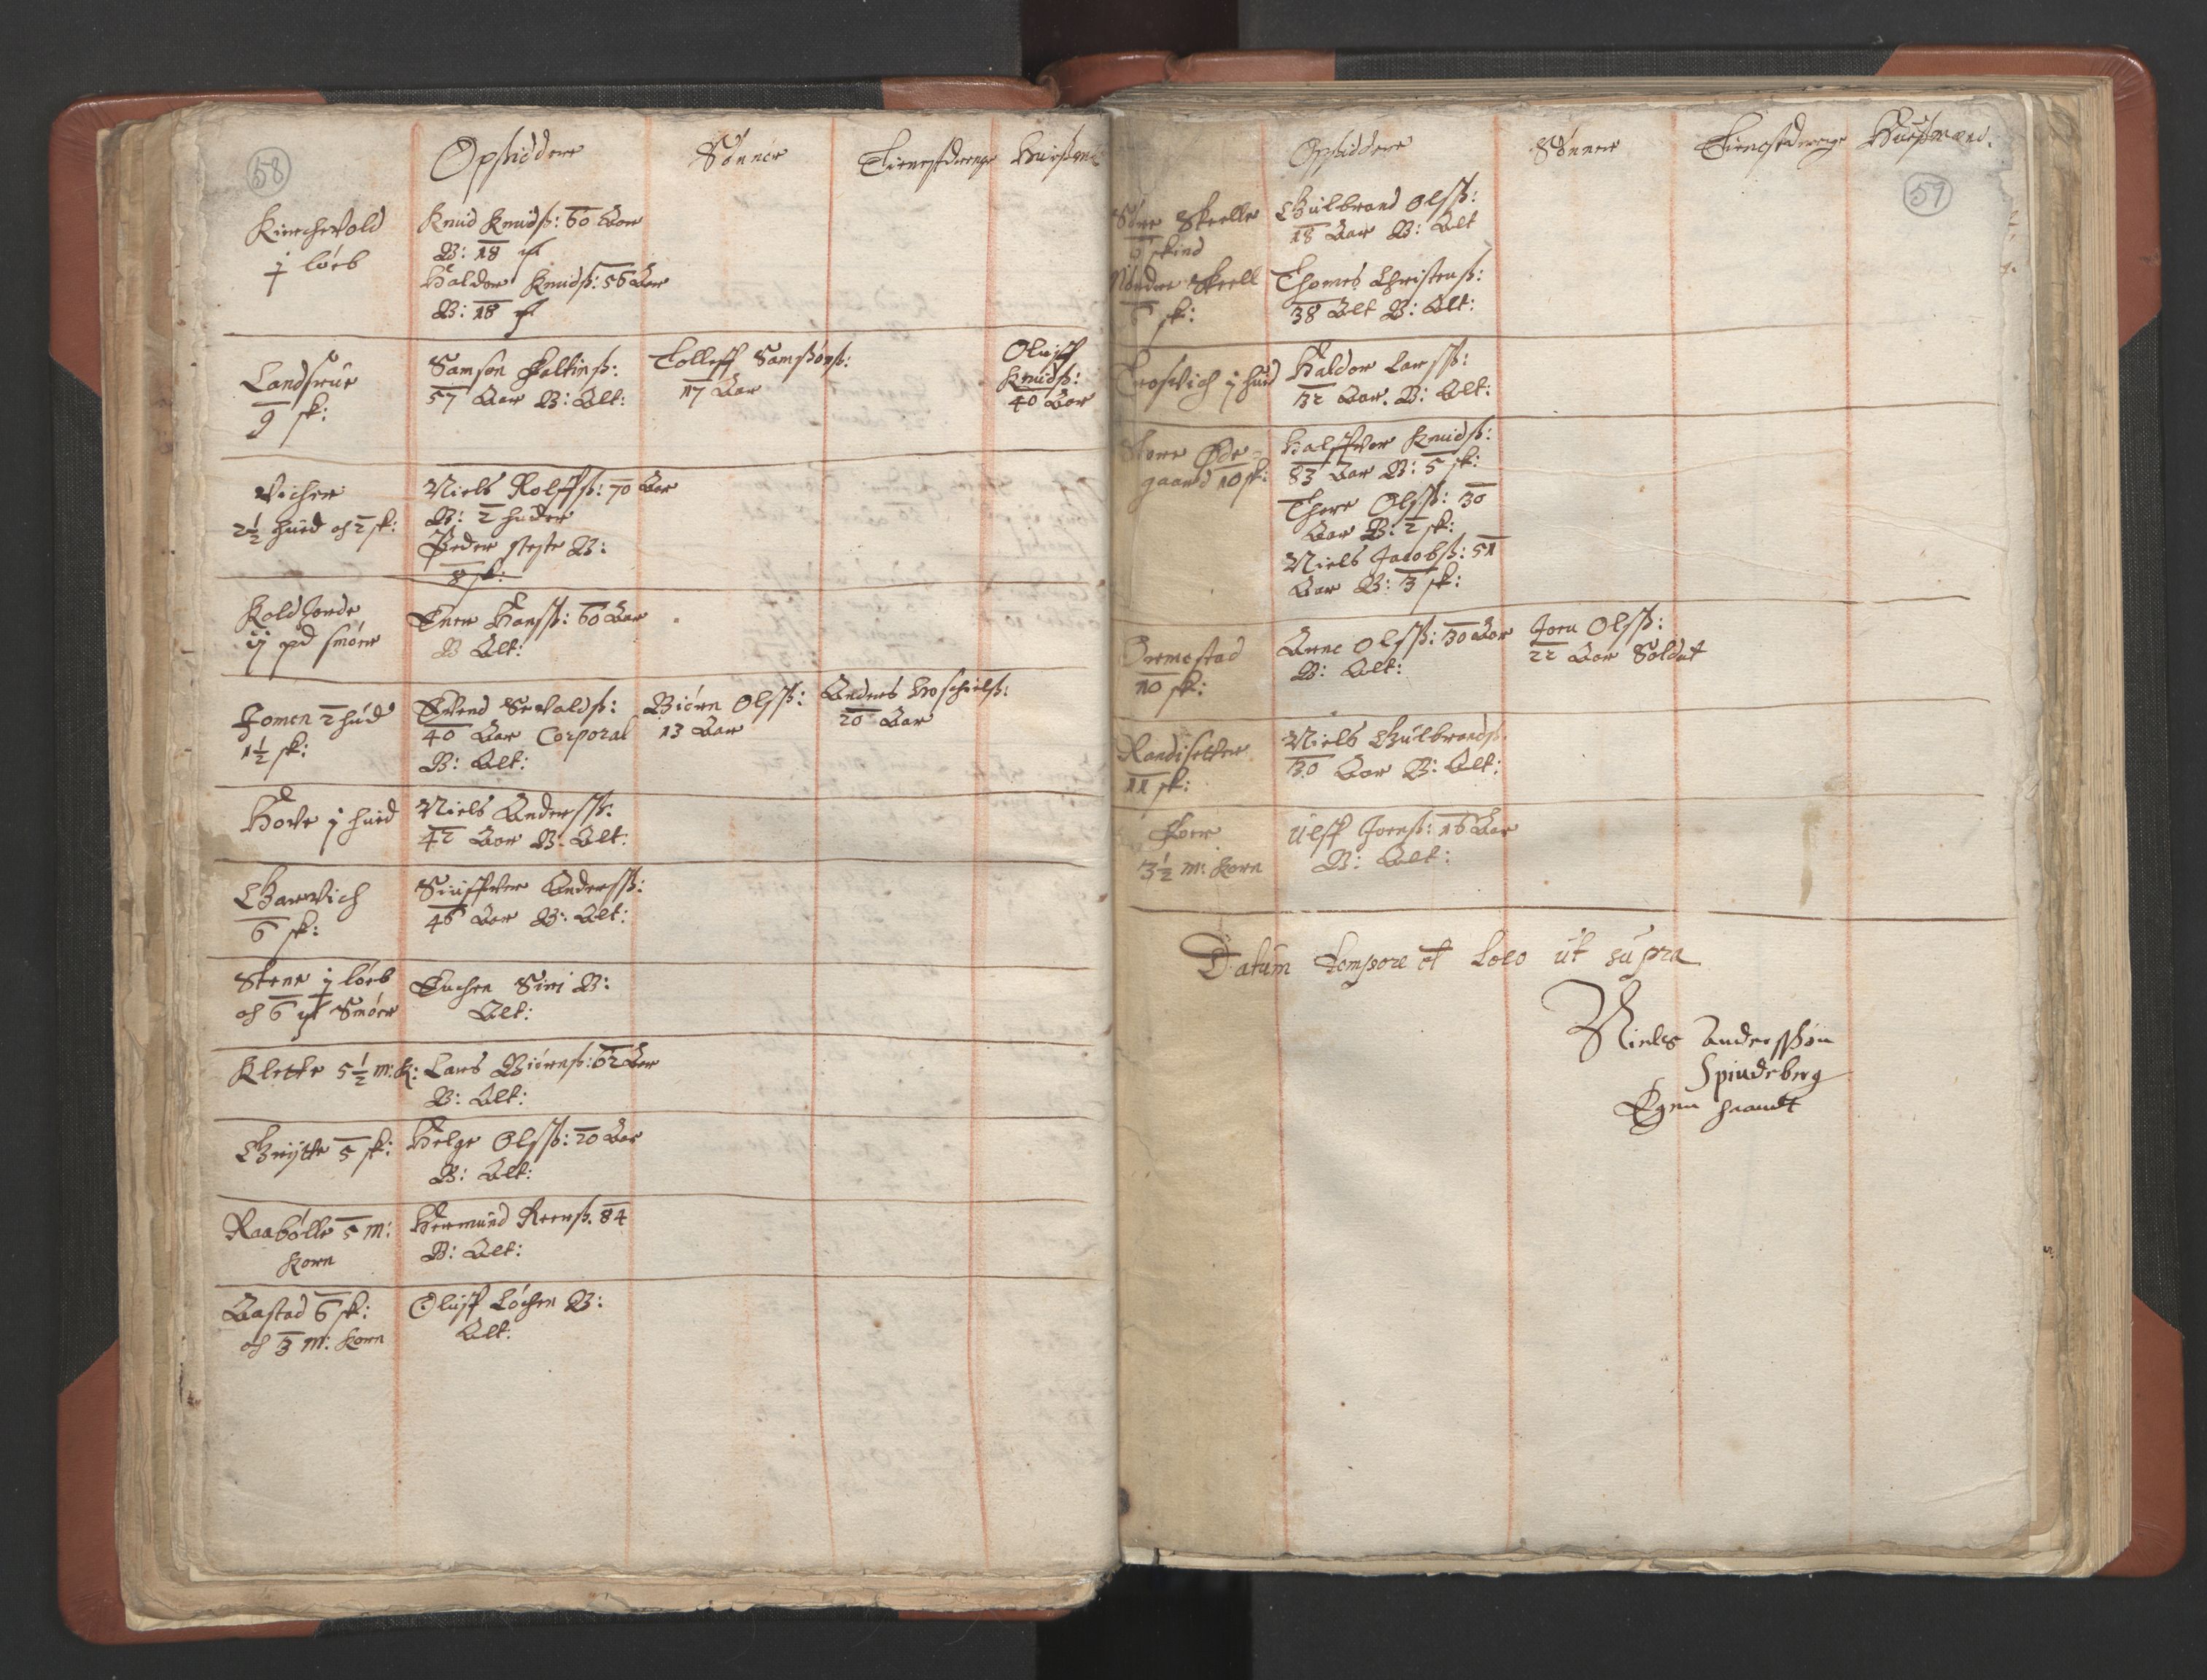 58
Opsiddere Sønner Tienistdrenge Huusme
Kirchevold
j løeb
Knud Knuds: 60 Aar
B: 18
Haldor Knuds: 56 Aar
B: 18
Landsrur
9 sk:
Samson
57 Aar B: Alt:
Tolleff Samsøns:
17 Aar
Oluff
Knuds:
40 Aar
Vicher
2½ hud och 2 sk:
Niels Rolffs: 70 Aar
B: 2 huder
Peder B:
8 sk:
Kold Jorde
ij pd smør
Hanss: 60 Aar
B Alt:
Jomen 2 hud
1½ sk:
Evend Sevalds:
40 Aar Corporal
B: Alt:
Biørn Olss:
13 Aar
Anders
20 Aar
Hove j hud
Niels Anderss:
42 Aar B: Alt:
Garvich
6 sk:
Siuffver Anderss:
46 Aar B: Alt:
Skene j løeb
och 6 Smør
Enchen Siri B:
Alt:
Klette 5½ m: k:
Lars Biørns: 62 Aar
B: Alt:
Grytte 5 sk:
Helge Olss: 20 Aar
B: Alt:
Raabølle 5 m:
Korn
Hermund Reers: 84
B: Alt:
Aastad 6 sk:
och 3 m: Korn
Oluff Løchen B:
Alt:
59
Opsiddere Sønner Tienistdrenge Huusmænd.
Søre Skeelle
6 skind
Gulbrand Olss:
18 Aar B: Alt
Nordre Skeell
6 sk:
Thomes Christens:
38 Alt B: Alt:
Trosvich j hud
Haldor Larss:
32 Aar. B: Alt:
Store Øde-
gaard 10 sk:
Halffvor Knuds:
83 Aar B: 5 sk:
Thore Olss: 30
Aar B: 2 sk:
Niels Jacobs: 51
Aar B: 3 sk:
Ormestad
10 sk:
Arne Olss: 30 Aar
B: Alt:
Joen Olss:
22 Aar Soldat
Randisetter
11 sk:
Niels Gulbrands:
30 Aar B: Alt:
Foer
3½ m: Korn
Ulff Joens: 16 Aar
B: Alt:
Datum tempore et loco ut supra
Niels Anderssøn
Spindeberg
Egen haandt